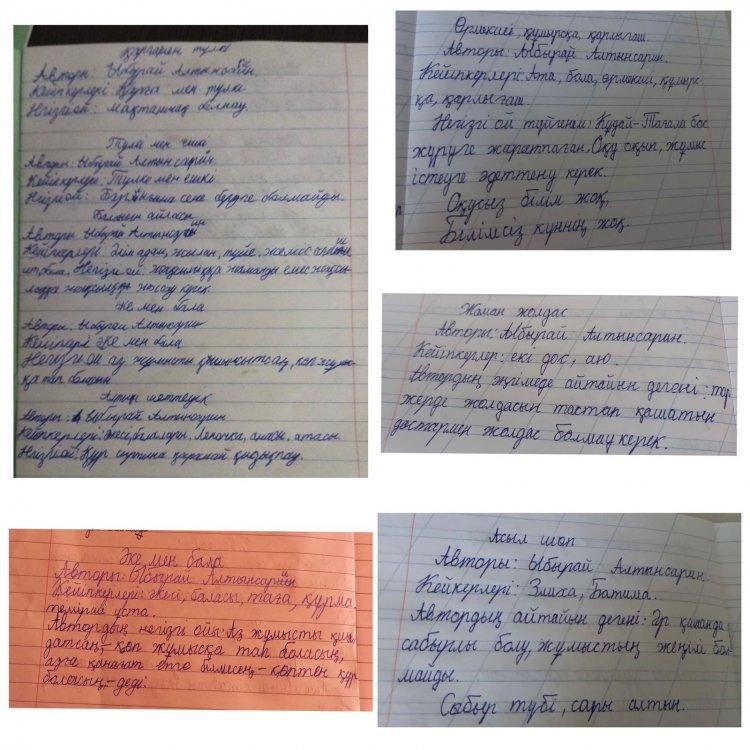 Қарғамен түлкі
Авторы: Ыбырай Алтынсарин.
Кейіпкерлері: Қарға мен түлкі
Негізгі ой: Мақтаншақ болмау.
Түлкі мен ешкі
Авторы: Ыбырай Алтынсарин.
Кейіпкерлері: Түлкі мен ешкі
Негізгі ой: Барлығына сене беруге болмайды.
айласы
Авторы: Ыбырай Алтынсарин
Кейіпкерлері: Әлімадам, жылан, түйе, жеміс ағашы
Негізгі ой: жақсылыққа жамандық емес жақсы-
жақсылық жасау керек
Әке мен бала
Авторы: Ыбырай Алтынсарин
Кейіпкерлері: Әке мен бала
Негізгі ой аз жұмысты қиынсытсаң, көп жұмыс-
қа тап боласың
Алтын шөптеуек
Авторы: Ыбырай Алтынсарин
Кейіпкерлері: Жесір балалары, Лепочка, анасы, атасы.
Негізгі ой: Құр сыртына қарамай
Өрмекші, құмырсқа, қарлығаш.
Авторы: Ыбырай Алтынсарин.
Кейіпкерлері: Ата, бала, өрмекші, құмырс-
қа, қарлығаш.
Негізгі ой түйгенім: Құдай-Тағала бос
жүруге жаратпаған. Оқу оқып, жұмыс
істеуге әдеттену керек.
Оқусыз білім жоқ,
Білімсіз күнің жоқ.
Жаман жолдас
Авторы: Ыбырай Алтынсарин.
Кейіпкерлер: екі дос, аю.
Автордың әңгімеде айтайын дегені: тар
жерде жолдасын тастап қашатын
достармен жолдас болмау керек.
Әке мен бала
Авторы: Ыбырай Алтынсарин
Кейіпкерлері: әкесі, баласы, таға, құрма,
темірші ұста.
Автордың негізгі ойы: Аз жұмысты қиын-
датсаң,- көп жұмысқа тап боласың,
азға қанағат ете білмесең,- көптен құр
боласың,- деді.
Асыл шөп
Авторы: Ыбырай Алтынсарин.
Кейкерлері: Злиха, Батима.
Автордың айтайын дегені: Әр қашанда
сабырлы болу, жұмыстың жеңілі бол-
майды.
Сабыр түбі, сары алтын.